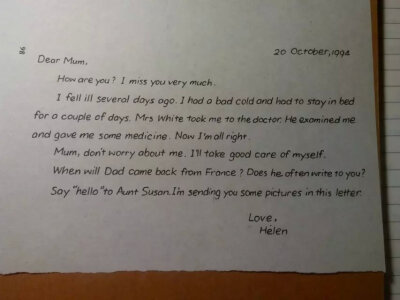 86
20 October,1994
Dear Mum,
How are you? I miss you very much.
I fell ill several days ago. I had a bad cold and had to stay in bed
for a couple of days. Mrs White took me to the doctor. He examined me
and gave me some medicine. Now I'm all right.
Mum, don't worry about me. I'll take good care of myself.
When will Dad came back from France? Does he often write to you?
Say "hello" to Aunt Susan. I'm sending you some pictures in this letter.
Love,
Helen